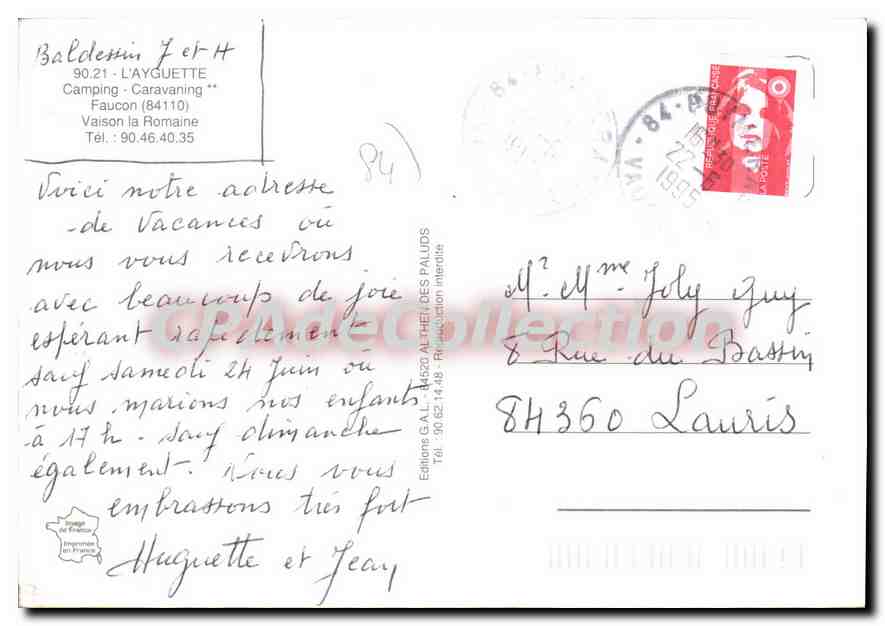 Baldessin J et H
90.21 - L'AYGUETTE
Camping - Caravaning **
Faucon (84110)
Vaison la Romaine
Tél. : 90.46.40.35
84)
Voici notre adresse
de vacances où
nous vous recevrons
avec beaucoup de joie
espérant rapidement
sauf samedi 24 Juin où
nous marions nos enfants
à 17 h - sauf dimanche
également. Nous vous
embrassons très fort
Huguette et Jean
Image
de France
Imprimée
en France
Editions G.A.L. - 84520 ALTHEN DES PALUDS
Tél. : 90 62.14.48 - Reproduction interdite
84
16 H 30
22 - 6
1995
RÉPUBLIQUE FRANÇAISE
LA POSTE
Mr. Mme Joly Guy
8 Rue du Bassin
84360 Lauris
CPAdeCollection